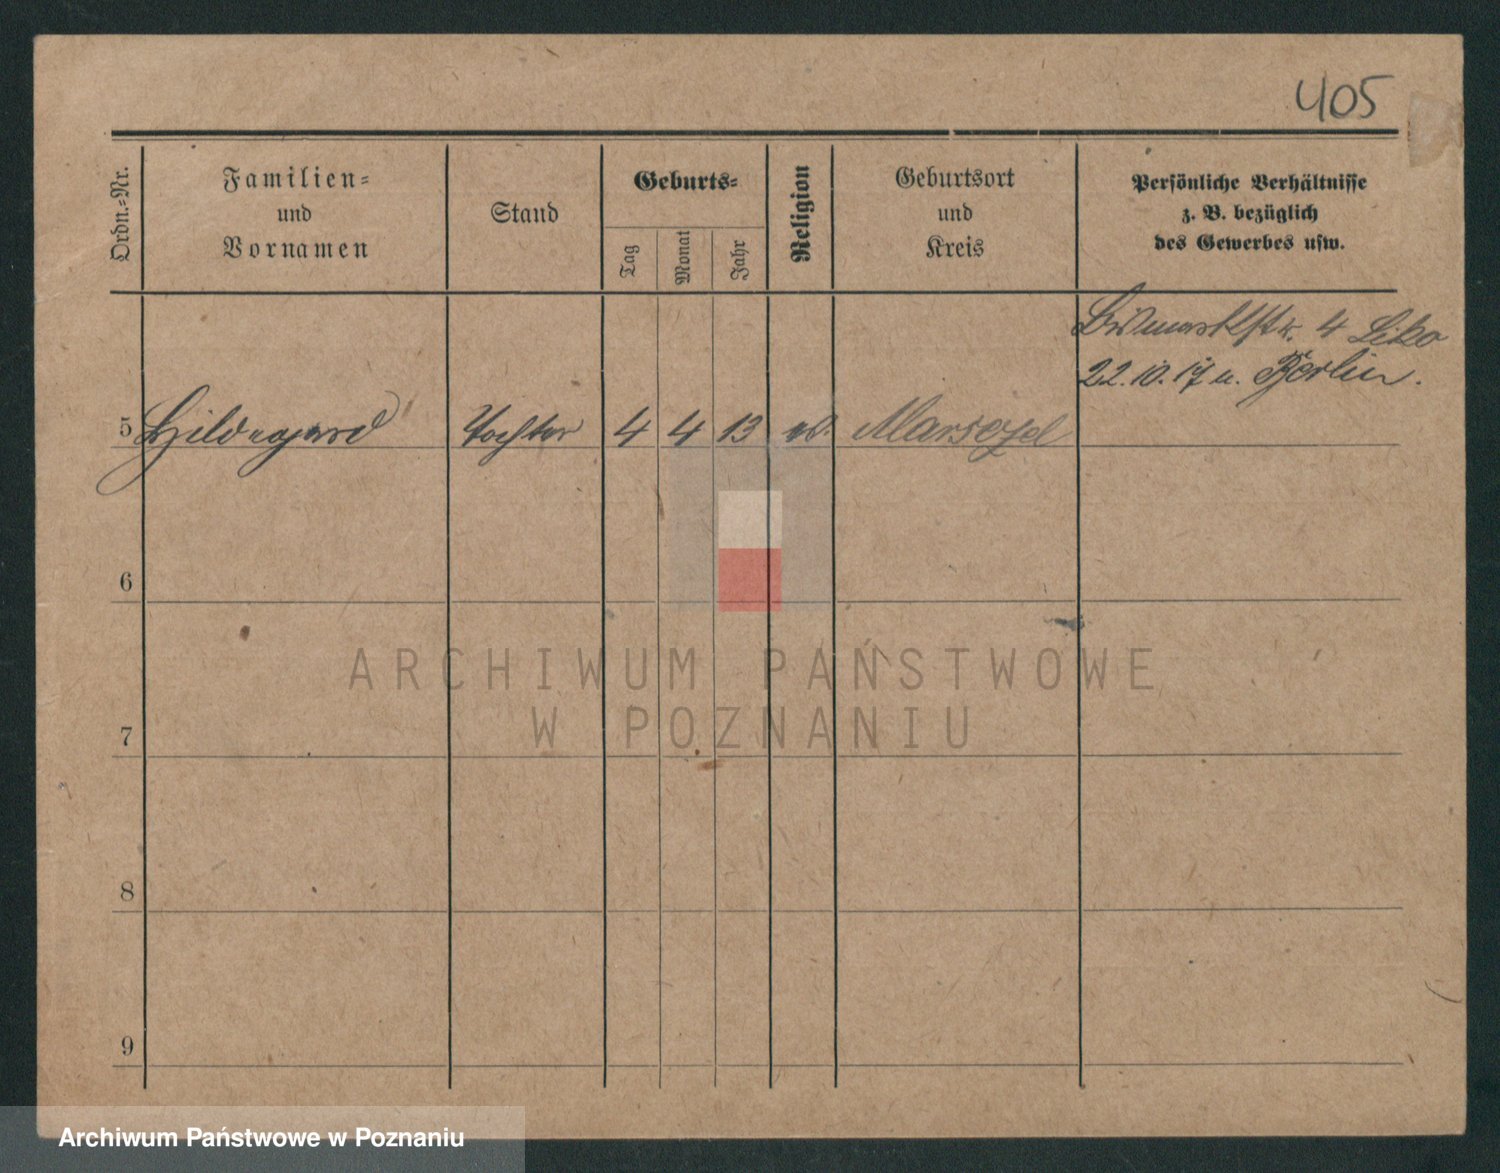 405
Ordn.-Nr.
Familien-
und
Vornamen
Stand
Geburts-
Tag
Monat
Jahr
Religion
Geburtsort
und
Kreis
Persönliche Verhältnisse
z. B. bezüglich
des Gewerbes usw.
4
22.10.17 n. Berlin.
5 Hildegard Tochter 4 4 13
6
7
8
9
ARCHIWUM PAŃSTWOWE
W POZNANIU
Archiwum Państwowe w Poznaniu